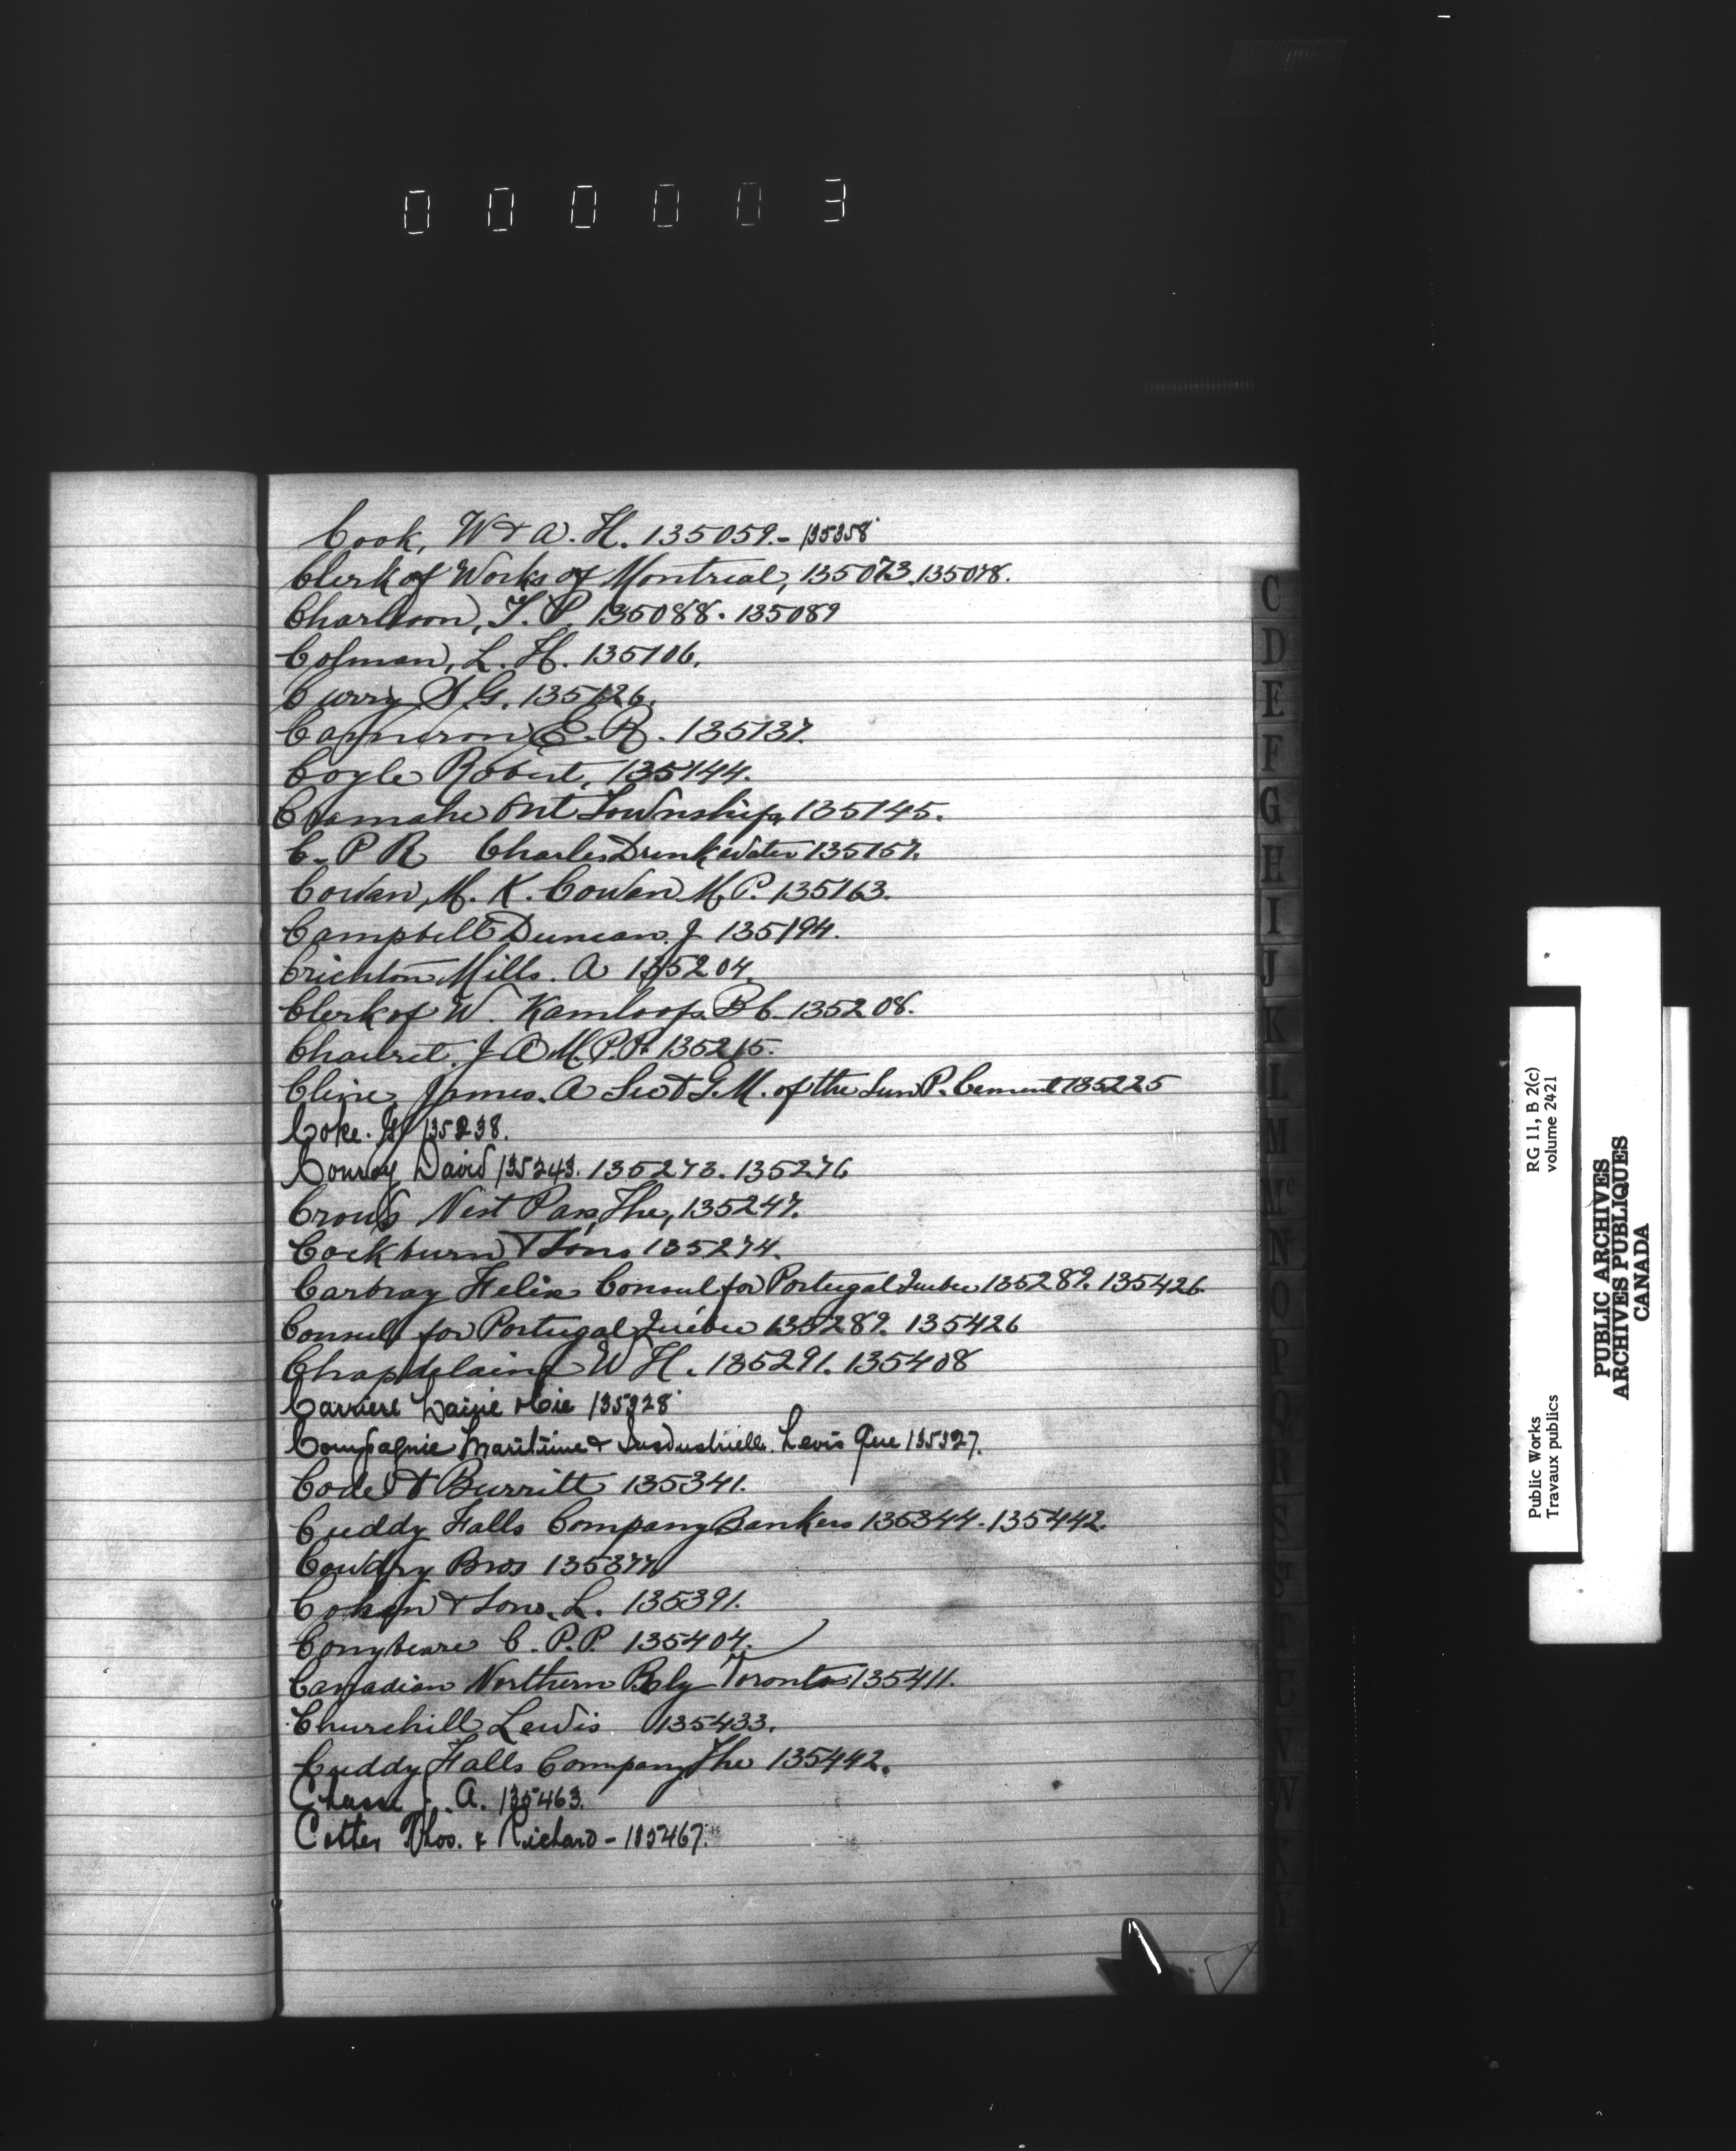 000003
Cook, W & A. H. 135059.- 135358
Clerk of Works of Montreal, 135073. 135078.
Charlson, T. P. 135088. 135089
Colman, L. H. 135106.
Curry S. G. 135126.
Cameron E. R. 135137.
Coyle Robert, 135144.
Cramahe Ont Township, 135145.
C. P R Charles Drinkwater 135157.
Cowan, M. K. Cowan M. P. 135163.
Campbell Duncan. J 135194.
Crichton Mills. A 135204.
Clerk of W. Kamloops. B C. 135208.
Chauret. J A M. P. P. 135215.
Cline, James. A Sec & G. M. of the Sun P. Cement 135225
Coke. 135238.
Conroy David 135243. 135273. 135276
Crow's Nest Pass, The, 135247.
Cockburn & Sons 135274.
Carbray Felix Consul for Portugal Quebec 135289. 135426.
Consul for Portugal Québec 135289. 135426
Chapdelaine W H. 135291. 135408
Carriere Lainé & Cie 135328
Compagnie Maritime & Industrielle. Levis Que 135327.
Code & Burritt 135341.
Cuddy Falls Company Bankers 135344. 135442.
Cowdry Bros 135377
Cohen & Sons, L. 135391.
Conybeare C. P. P. 135404.
Canadian Northern Rly Toronto 135411.
Churchill Lewis 135433.
Cuddy Falls Company The 135442.
Chasse J. A. 135463.
Cotter Thos. & Richard - 135467.
C
D
E
F
G
H
I
J
K
L
M
Mc
N
O
P
Q
R
S
St
T
V
W
Public Works
Travaux publics
RG 11, B 2(c)
volume 2421
PUBLIC ARCHIVES
ARCHIVES PUBLIQUES
CANADA